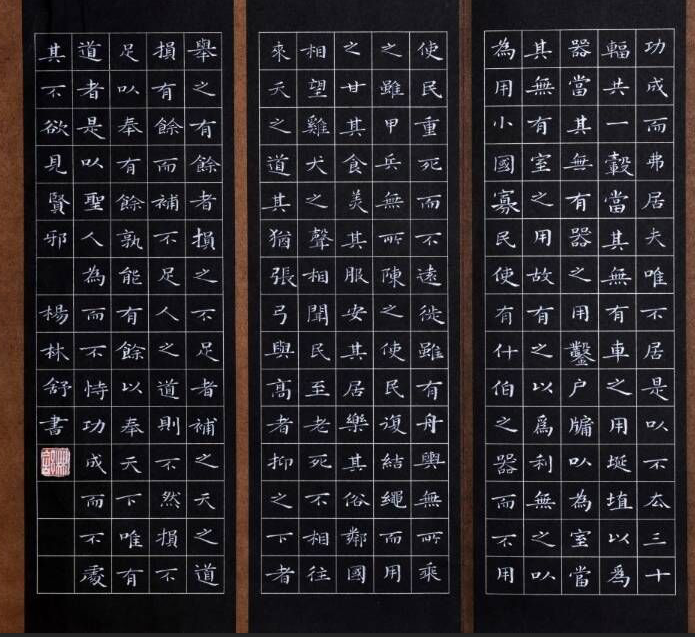 功成而弗居夫唯不居是以不去三十
輻共一轂當其無有車之用埏埴以爲
器當其無有器之用鑿户牖以為室當
其無有室之用故有之以爲利無之以
為用小國寡民使有什伯之器而不用
使民重死而不遠徙雖有舟輿無所乘
之雖甲兵無所陳之使民復結繩而用
之甘其食美其服安其居樂其俗鄰國
相望雞犬之聲相聞民至老死不相往
來天之道其猶張弓與髙者抑之下者
舉之有餘者損之不足者補之天之道
損有餘而補不足人之道則不然損不
足以奉有餘孰能有餘以奉天下唯有
道者是以聖人為而不恃功成而不處
其不欲見賢邪 楊林舒書